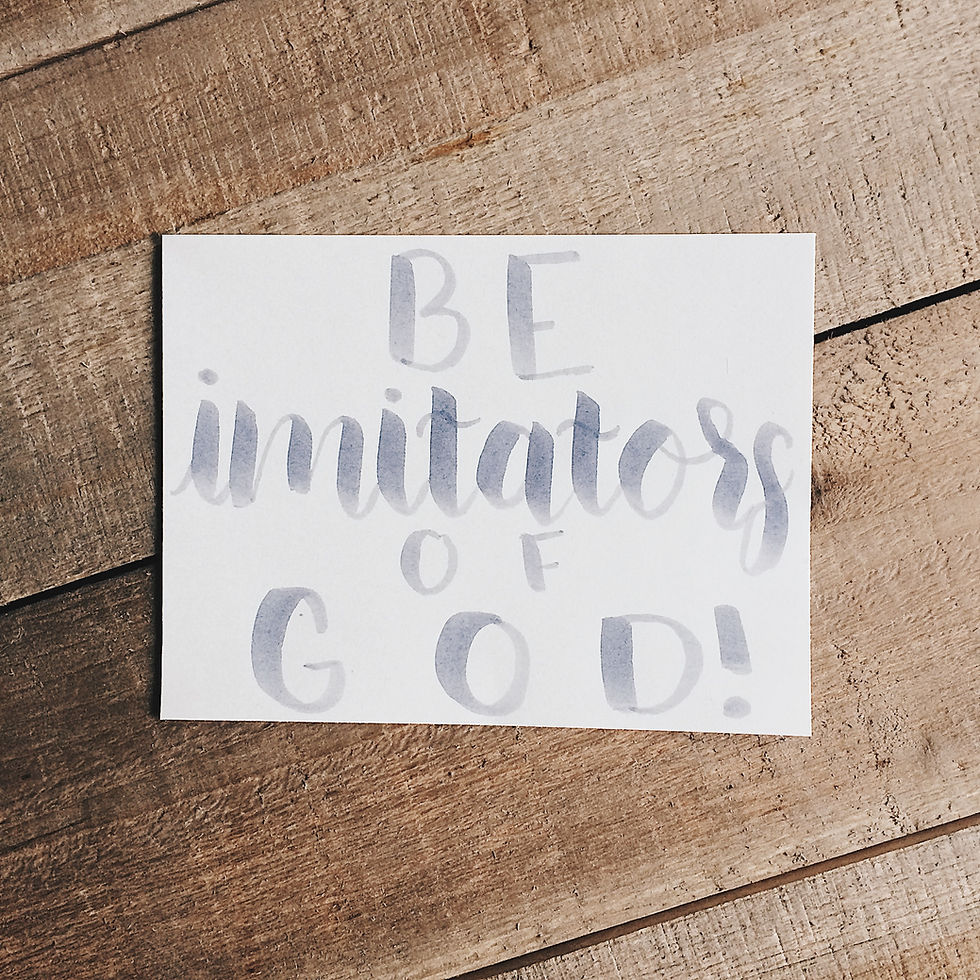 BE
imitators
OF
GOD!